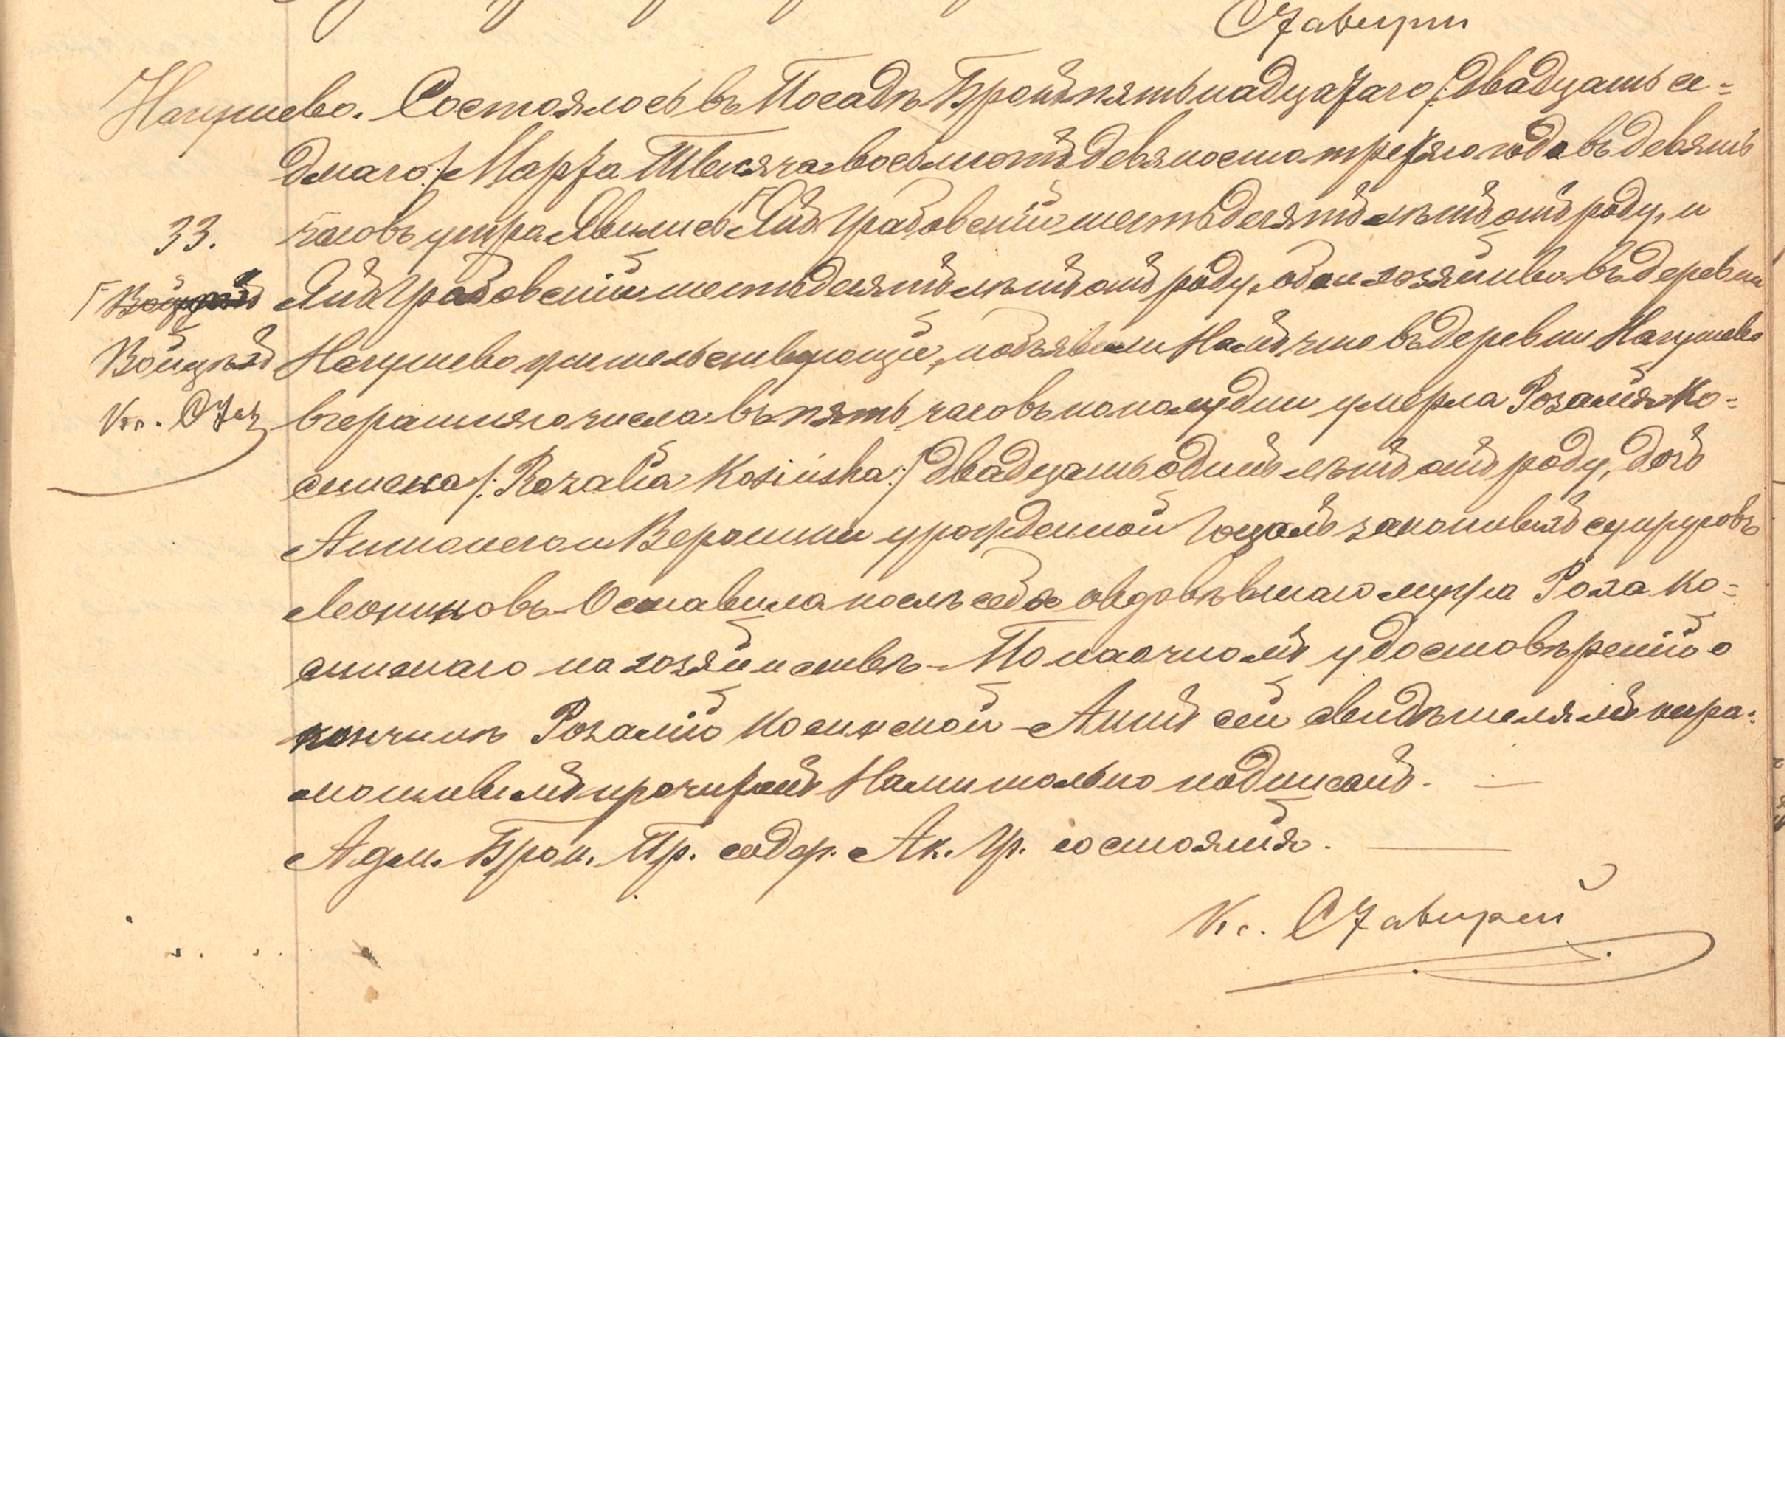 Ставирей
Нагушево. Состоялось въ Посадѣ Брокъ пятьнадцатаго /: двадцать се=
дмаго :/ Марта Тысяча восемьсотъ девяносто третяго года въ девять
33. часовъ утра. Явились Янъ Грабовскій шестьдесятъ лѣтъ отъ роду, и
Янъ Грабовскій шестьдесятъ лѣтъ отъ роду, оба хозяиева въ деревни
Войцѣхъ Нагушево жительствующіе, и объявили Намъ что въ деревни Нагушево
Кс. Став вчерашняго числа въ пять часовъ пополудни умерла Розалія Ко=
синска /: Rozalia Kosińska :/ двадцать одинъ лѣтъ отъ роду, дочь
Антонего и Вероники урожденной законныхъ супруговъ
Оставила послѣ себя овдовѣвшаго мужа Роха Ко=
синскаго на хозяйствѣ. По наочномъ удостовѣреніи о
кончинѣ Розаліи Косинской Актъ сей свидѣтелямъ негра=
мотнымъ прочитанъ Нами только подписанъ.
Адм. Брок. Пр. содер. Ак. Гр. состоянія.
Кс. Ставирей